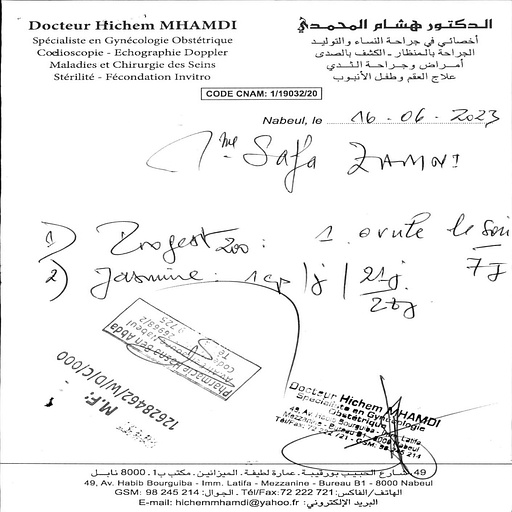 Docteur Hichem MHAMDI
Spécialiste en Gynécologie Obstétrique
Coelioscopie - Echographie Doppler
Maladies et Chirurgie des Seins
Stérilité - Fécondation Invitro
الدكتور هشام المحمدي
أخصائي في جراحة النساء والتوليد
الجراحة بالمنظار - الكشف بالصدى
أمراض وجراحة الثدي
علاج العقم وطفل الأنبوب
CODE CNAM: 1/19032/20
Nabeul, le 16 - 06 - 2023
Mme Safa
1) Progest 200 : 1 ovule le soir
7j
2) Jasmine : 1cp/j / 21j
Pharmacie
M.F:
12628462/W/D/C/000
Docteur Hichem MHAMDI
Spécialiste en Gynécologie
Obstétrique
49, Av. Habib Bourguiba - Imm. Latifa
Mezzanine - Bureau B1 - 8000 Nabeul
Tél/Fax: 72 222 721 - GSM: 98 245 214
49 شارع الحبيب بورقيبة. عمارة لطيفة. الميزانين. مكتب ب1. 8000 نابل
49, Av. Habib Bourguiba - Imm. Latifa - Mezzanine - Bureau B1 - 8000 Nabeul
GSM: 98 245 214 الجوال: Tél/Fax:72 222 721 الهاتف/الفاكس:
E-mail: hichemmhamdi@yahoo.fr البريد الإلكتروني: